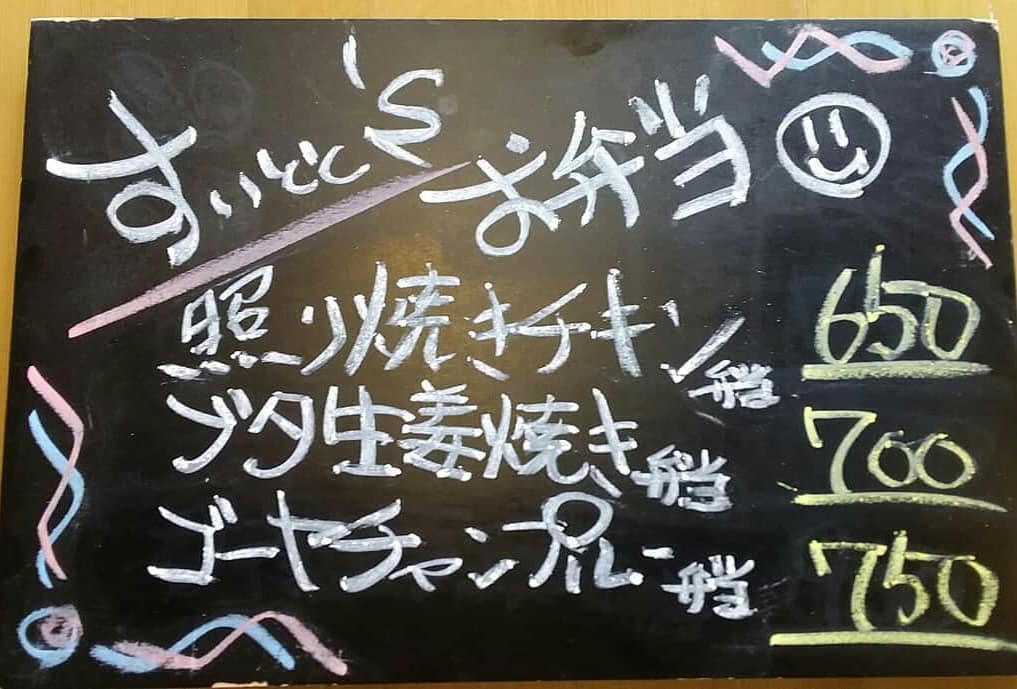 すいとど'S お弁当
照り焼きチキン弁当 650
ブタ生姜焼き弁当 700
ゴーヤチャンプルー弁当 750